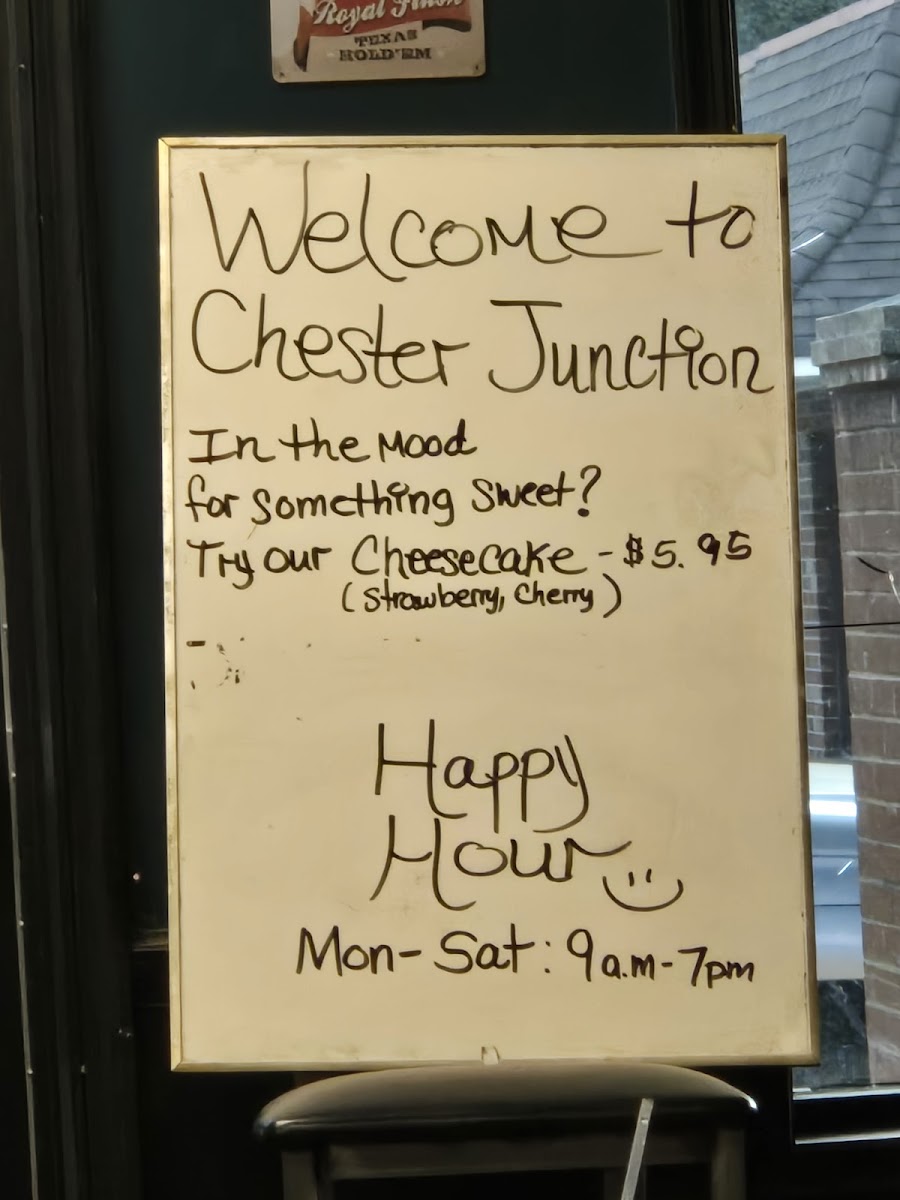 Royal Flush
TEXAS
HOLD'EM
Welcome to
Chester Junction
In the Mood
for something sweet?
Try our Cheesecake - $5.95
(Strawberry, Cherry)
Happy
Hour
Mon- Sat: 9a.m-7pm